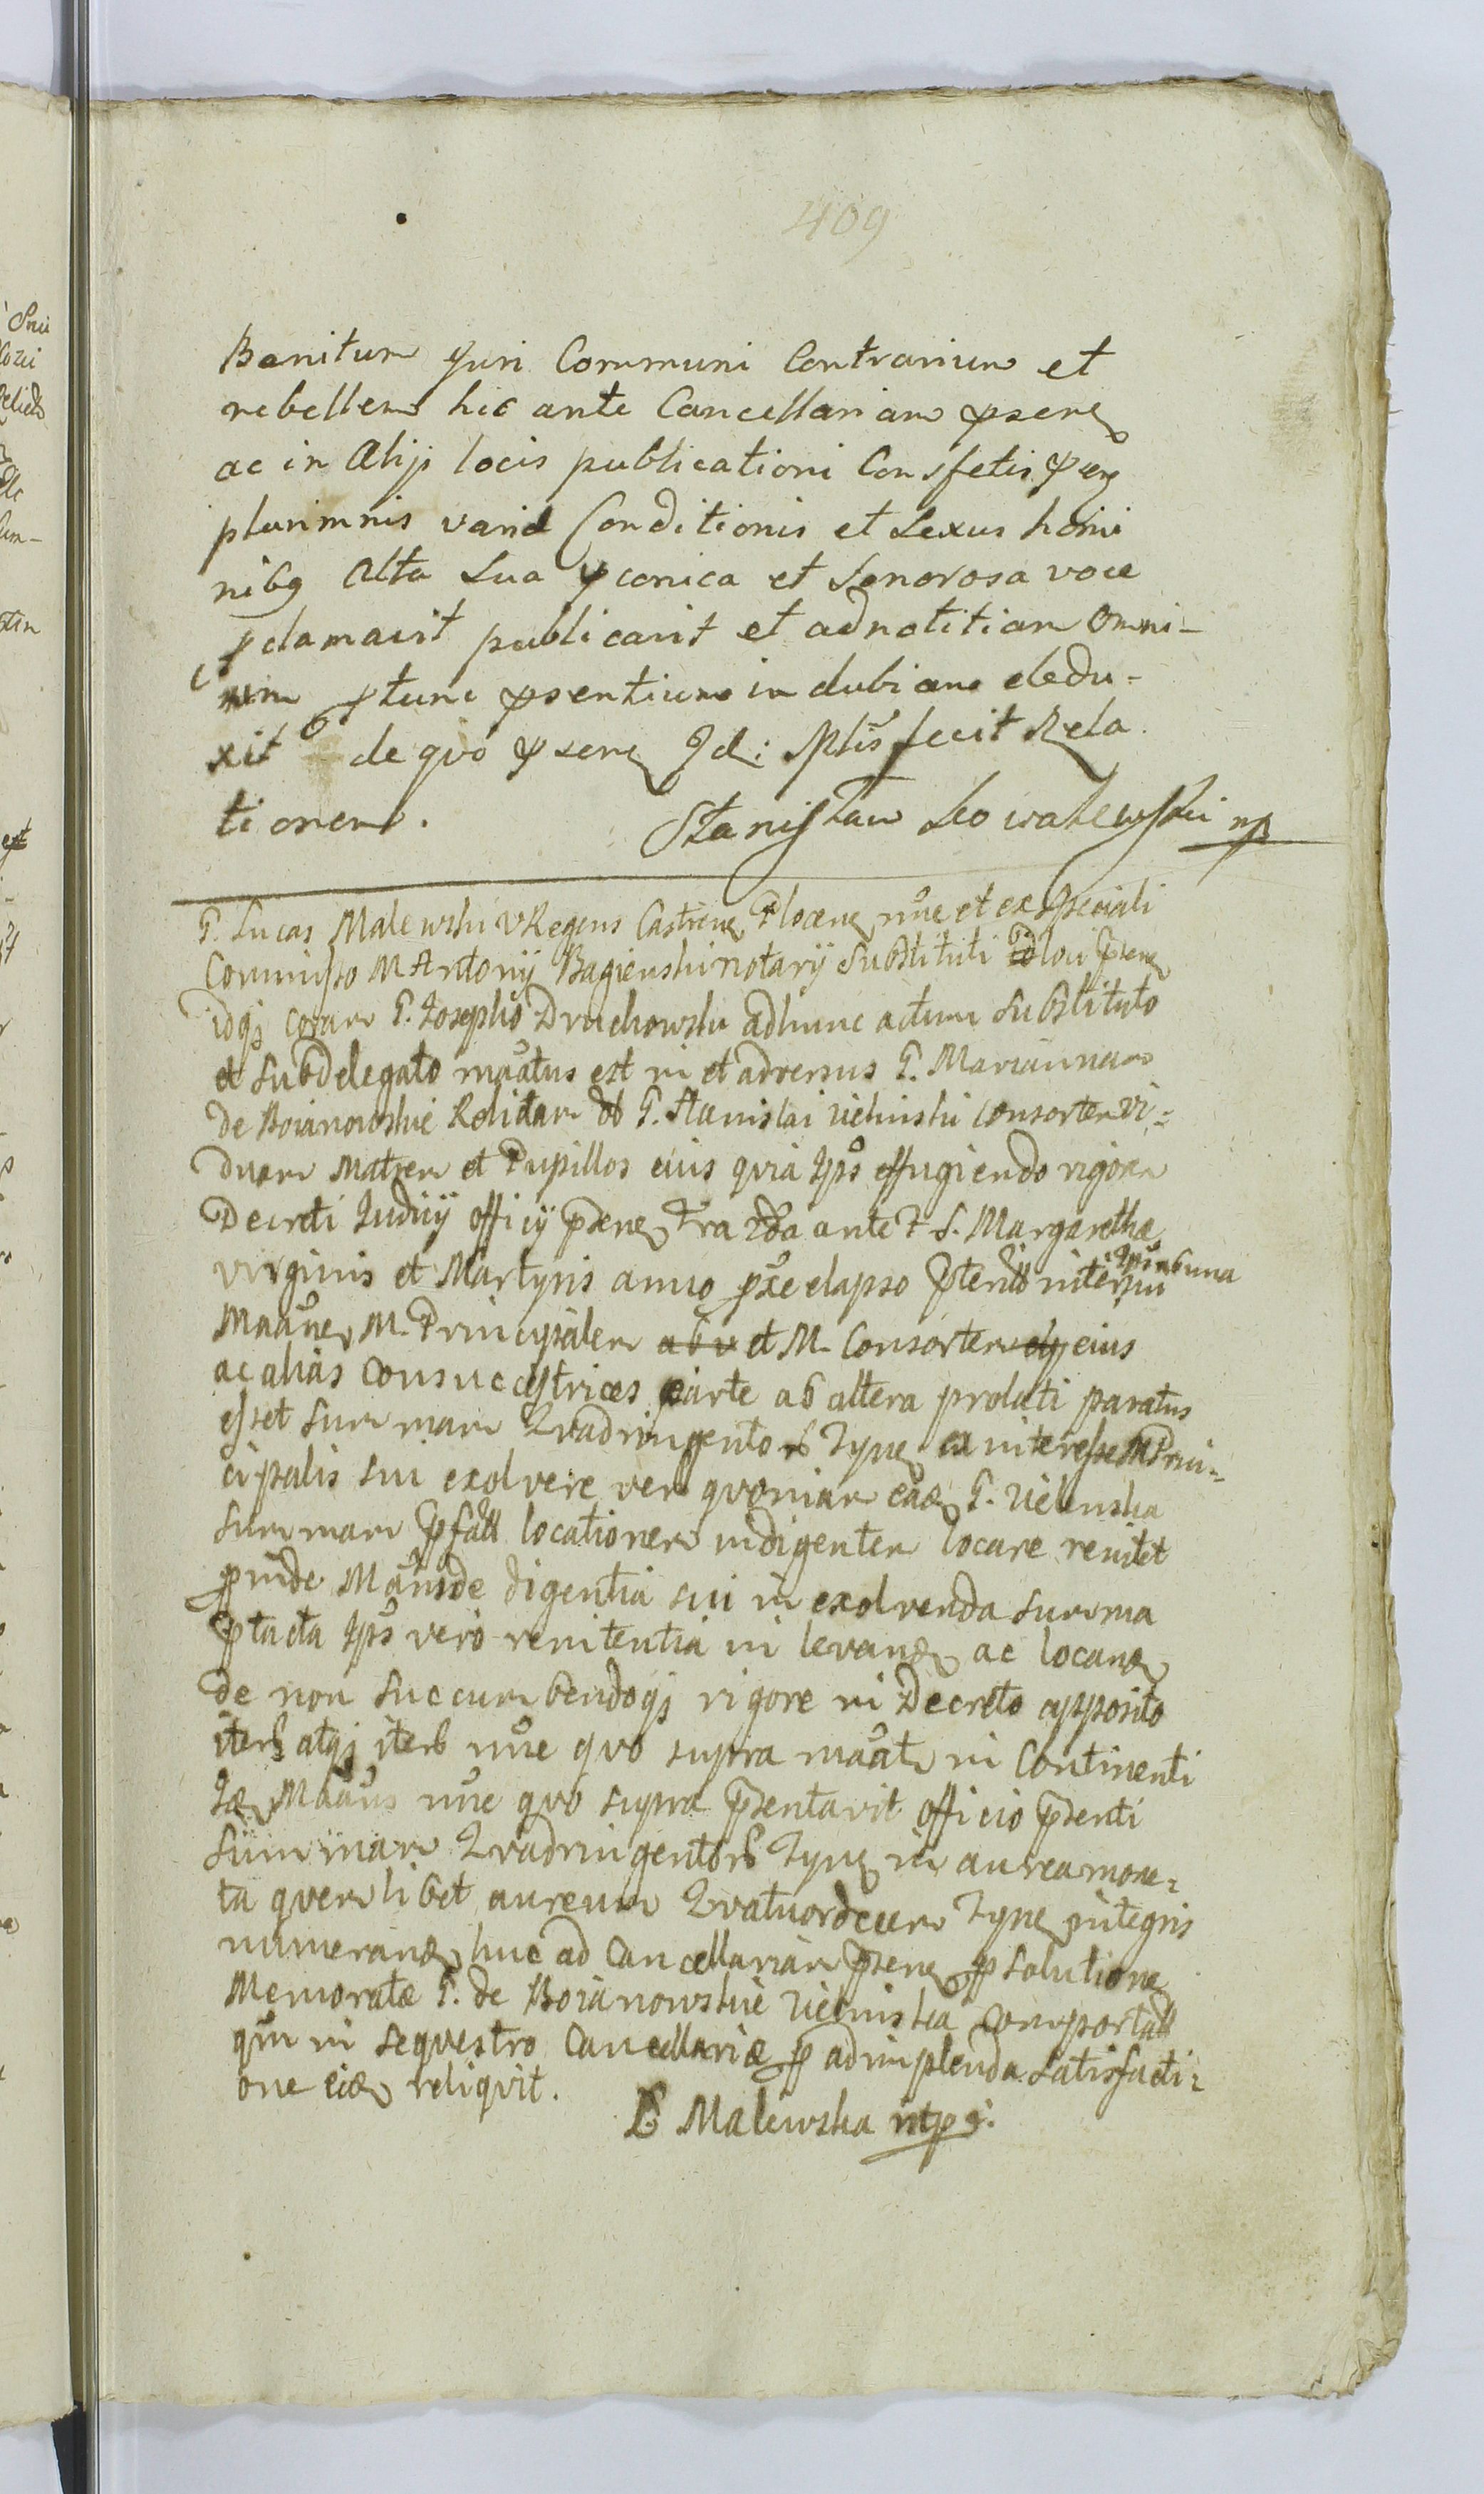 409
Banitum Juri Communi Contrarium et
rebellem hic ante Cancellariam pseñ
ac in Alijs locis publicationi Consvetis per
plurimris variæ Conditionis et Sexus homi
nibq Alta Sua yconica et Sonorosa voce
pclamavit publicavit et adnotitiam omni-
um ptunc psentium indubiam dedu-
xit de qvo pseñ Id: Mlis fecit Rela
tionem. Stanisław Kowalewski mp
G. Lucas Malewski VRegens Castreñ Ploceñ nŏe et ex Speciali
Commisso M Antonij Bagienski notarij Substituti Ploci pseñ
idqs coram G. Josepho Druchowski adhunc actum Substituto
et Subdelegato maatus est in et adversus G. Mariannam
de Boianowskie Relictam G. Stanislai Uielinski consortem Vi=
duam Matrem et Pupillos eius qvia Ips effugiendo rigorem
Decreti Judicij officij pseñ fra 2da ante f S. Margarethæ
virginis et Martyris anno pxe elapso inter Ips ab una
Maañem M. Principalem abv et M. Consortem eius
ac alias consuccestrices parte ab altera prolati paratus
esset summam Qvadringentorb Tyñ ex interesse M Prin=
cipalis sui exolvere ver qvoniam eadem G. Uielinska
Summam locationem indigentem locare renitet
proinde Maans de digentia sui in exolvenda summa
ptacta Ips vero renitentia in levanda ac locanda
de non succumbendoqs rigore in Decreto apposito
iterb atqs iterb nŏe qvo supra maat in Continenti
Idem Maaus nŏe qvo supra psentavit officio psenti
Summam Qvadringentorb Tyñ in aurea mone=
ta qvemlibet aureum Qvatuordecem Tyñ integris
numerando huc ad Cancellariam pseñ p solutione
Memoratæ G. de Boianowskie Uielinska comportatt
qm in seqvestro Cancellariæ p adimplenda satisfacti=
one eidem reliqvit.
Ł Malewski mp